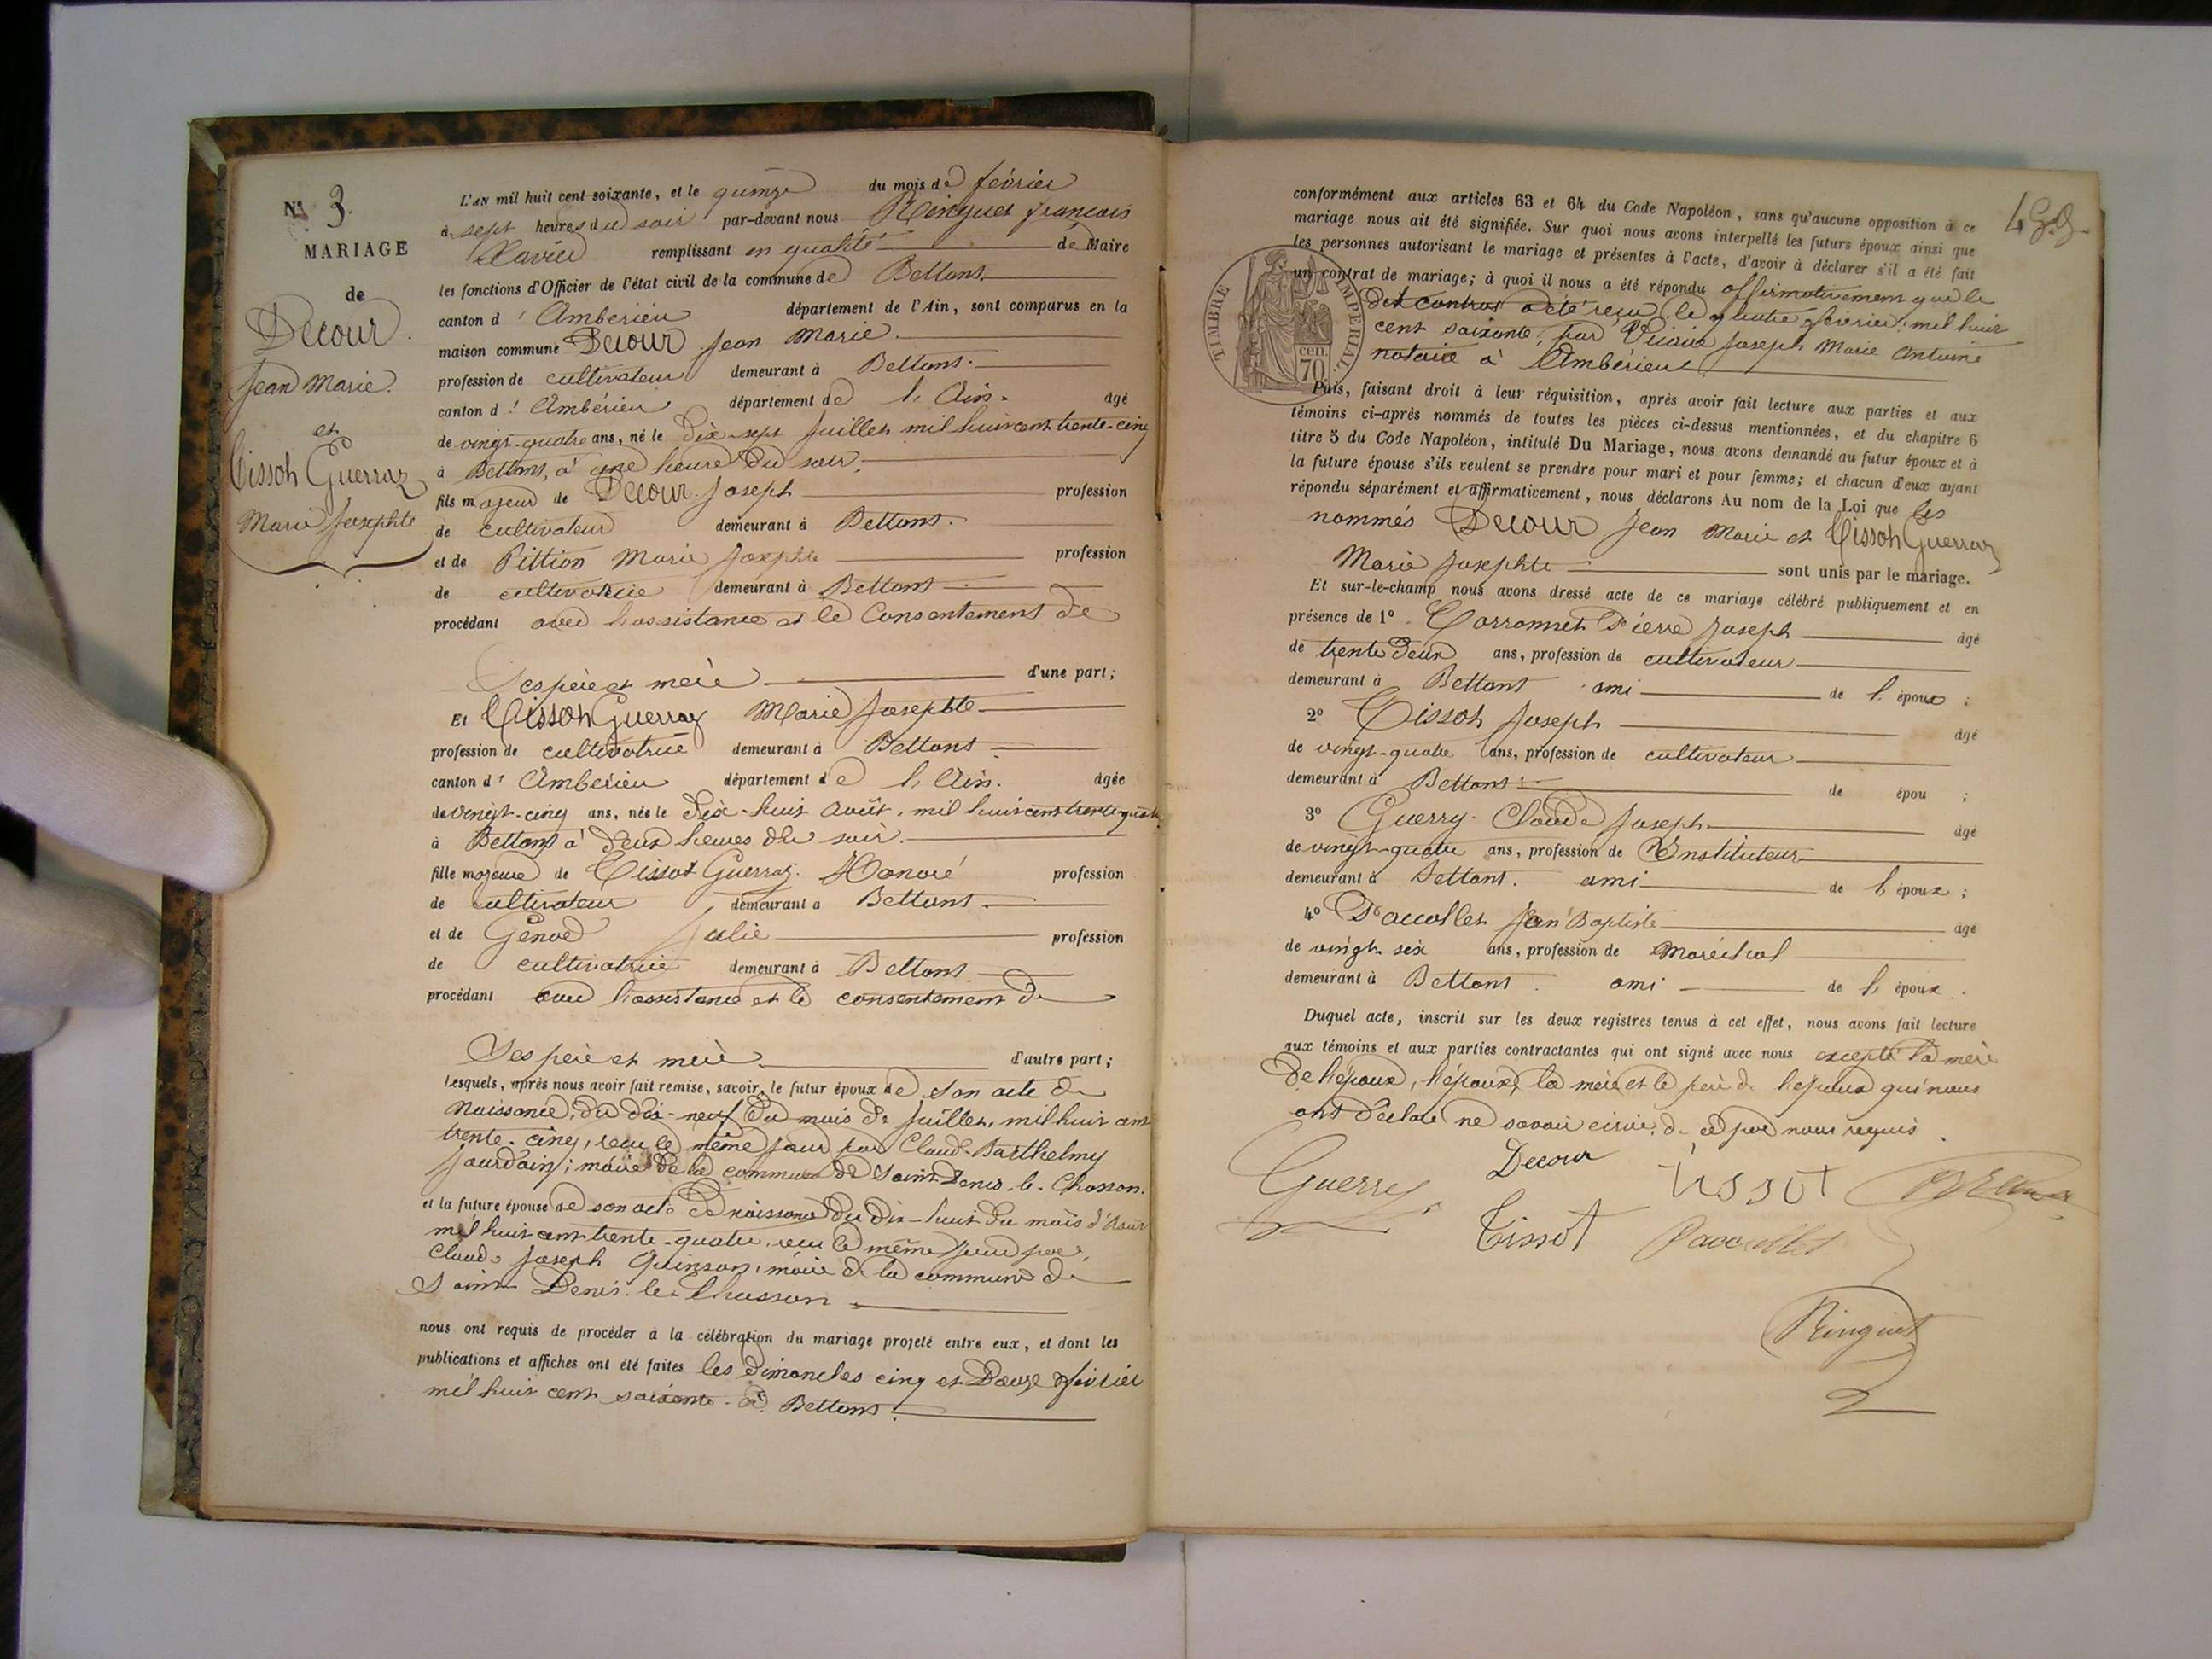 N° 3
MARIAGE
de
Decour
Jean Marie
et
Tissot Guerraz
Marie Josephte
L'AN mil huit cent soixante, et le quinze du mois de février
à sept heures du soir par-devant nous Ringuet françois
Xavier remplissant en qualité de Maire
les fonctions d'Officier de l'état civil de la commune de Bettans
canton d' Ambérieu département de l'Ain, sont comparus en la
maison commune Decour Jean Marie
profession de cultivateur demeurant à Bettans
canton d' Ambérieu département de l'Ain. âgé
de vingt-quatre ans, né le dix-sept juillet mil huit cent trente-cinq
à Bettans, à une heure du soir,
fils majeur de Decour Joseph profession
de cultivateur demeurant à Bettans.
et de Pittion Marie Josephte profession
de cultivatrice demeurant à Bettans
procédant avec l'assistance et le consentement de
Ses père et mère d'une part;
Et Tissot Guerraz Marie Josephte
profession de cultivatrice demeurant à Bettans
canton d' Ambérieu département de l'Ain. âgée
de vingt-cinq ans, née le dix-huit août, mil huit cent trente quatre
à Bettans à deux heures du soir.
fille majeure de Tissot Guerraz Honoré profession
de cultivateur demeurant à Bettans
et de Genod Julie profession
de cultivatrice demeurant à Bettans
procédant avec l'assistance et le consentement de
Ses père et mère d'autre part;
Lesquels, après nous avoir fait remise, savoir, le futur époux de son acte de
naissance, du dix-neuf du mois de juillet, mil huit cent
trente-cinq, reçu le même jour par Claude Barthelmy
Jourdain, maire de la commune de Saint Denis-le-Chosson.
et la future épouse de son acte de naissance du dix-huit du mois d'Août
mil huit cent trente-quatre, reçu le même jour par
Claude Joseph Quinson, maire de la commune de
Saint Denis-le-Chosson
nous ont requis de procéder à la célébration du mariage projeté entre eux, et dont les
publications et affiches ont été faites les dimanches cinq et Douze février
mil huit cent soixante à Bettans.
4
conformément aux articles 63 et 64 du Code Napoléon, sans qu'aucune opposition à ce
mariage nous ait été signifiée. Sur quoi nous avons interpellé les futurs époux ainsi que
les personnes autorisant le mariage et présentes à l'acte, d'avoir à déclarer s'il a été fait
un contrat de mariage; à quoi il nous a été répondu affirmativement que le
dit contrat a été reçu le quatre février mil huit
cent soixante, par Joseph Marie Antoine
notaire à Ambérieu
TIMBRE IMPERIAL
70 cen.
Puis, faisant droit à leur réquisition, après avoir fait lecture aux parties et aux
témoins ci-après nommés de toutes les pièces ci-dessus mentionnées, et du chapitre 6
titre 5 du Code Napoléon, intitulé Du Mariage, nous avons demandé au futur époux et à
la future épouse s'ils veulent se prendre pour mari et pour femme; et chacun d'eux ayant
répondu séparément et affirmativement, nous déclarons Au nom de la Loi que les
nommés Decour Jean Marie et Tissot Guerraz
Marie Josephte sont unis par le mariage.
Et sur-le-champ nous avons dressé acte de ce mariage célébré publiquement et en
présence de 1° Pierre Joseph âgé
de trente deux ans, profession de cultivateur
demeurant à Bettans ami de l'époux ;
2° Tissot Joseph âgé
de vingt-quatre ans, profession de cultivateur
demeurant à Bettans de épou ;
3° Guerry Claude Joseph âgé
de vingt-quatre ans, profession de Instituteur
demeurant à Bettans. ami de l'époux ;
4° Paccollet Jean Baptiste âgé
de vingt six ans, profession de Maréchal
demeurant à Bettans. ami de l'époux.
Duquel acte, inscrit sur les deux registres tenus à cet effet, nous avons fait lecture
aux témoins et aux parties contractantes qui ont signé avec nous excepté la mère
de l'époux, l'épouse, la mère et le père de l'épouse qui nous
ont déclaré ne savoir écrire, de ce par nous requis.
Guerry Decour Tissot
Tissot Paccollet
Ringuet